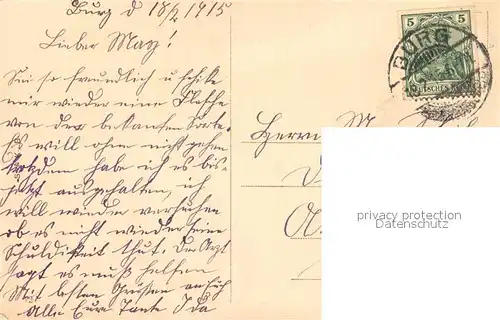 Burg d 18/2 1915
Lieber Max!
Sei so freundlich u schike
mir wieder eine Flasche
von der bekanten Sorte.
Es will ohne nicht gehen
trotzdem habe ich es bis-
jetzt ausgehalten, ich
will wieder versuchen
ob es nicht wieder seine
Schuldikeit thut. Der Arzt
sagt es muß helfen
Mit besten Grüßen an euch
Alle Eure Tante Ida
5 5
BURG
Herrn M.
privacy protection
Datenschutz